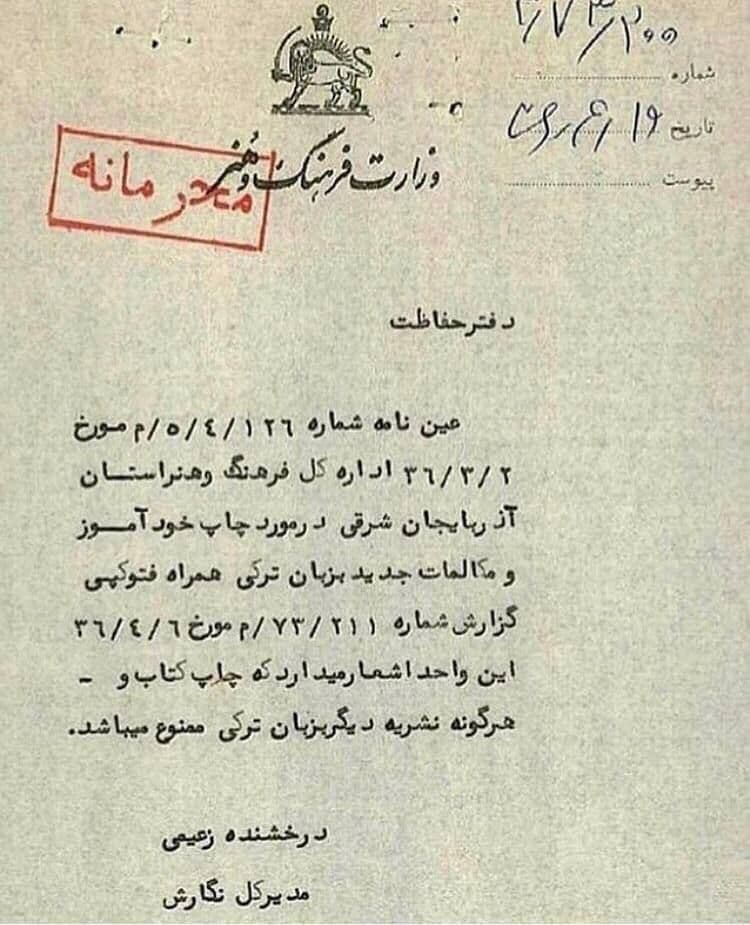 شماره
تاریخ ۳۶/۴/۱۶
پیوست
وزارت فرهنگ و هنر
محرمانه
دفتر حفاظت
عین نامه شماره ۱۲٦/٤/۵/م مورخ
۳٦/۳/۲ اداره کل فرهنگ وهنراستان
آذربایجان شرقی درمورد چاپ خودآموز
و مکالمات جدید بزبان ترکی همراه فتوکپی
گزارش شماره ۲۱۱/۷۳/م مورخ ۳٦/٤/٦
این واحد اشعارمیدارد که چاپ کتاب و -
هرگونه نشریه دیگربزبان ترکی ممنوع میباشد.
درخشنده زعیمی
مدیرکل نگارش